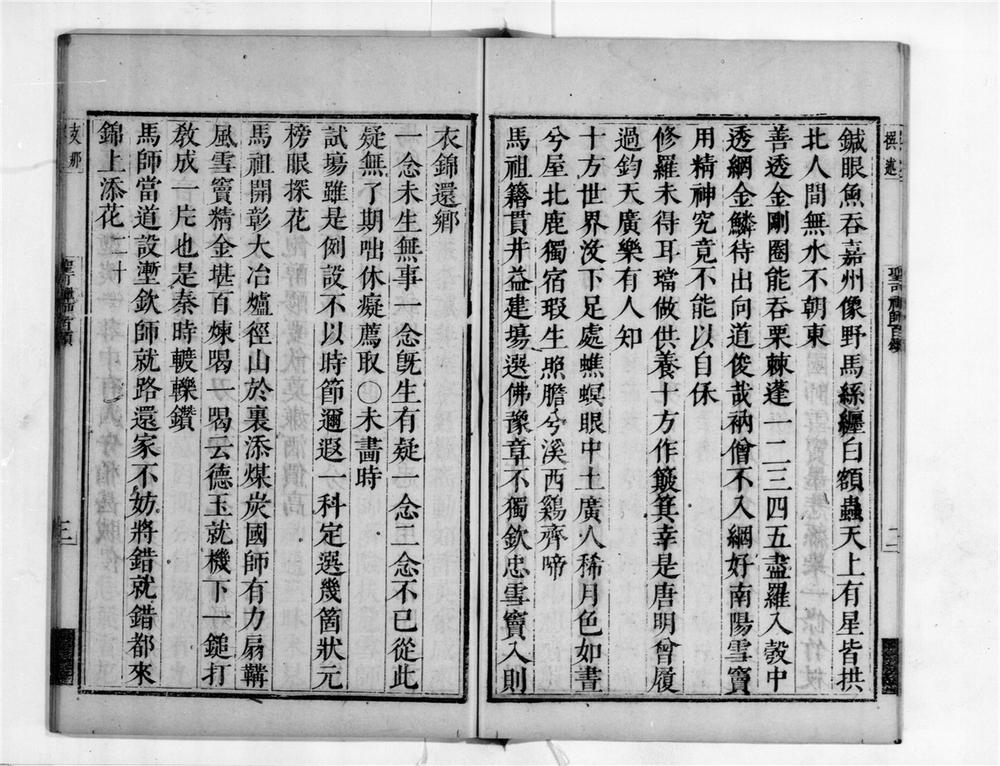 撰述
鍼眼魚吞嘉州像野馬絲纏白額蟲天上有星皆拱
北人間無水不朝東
善透金剛圈能吞栗棘蓬一二三四五盡羅入彀中
透網金鱗待出向道俊哉衲僧不入網好南陽雪竇
用精神究竟不能以自休
修羅未得耳璫做供養十方作簸箕幸是唐明曾履
過鈞天廣樂有人知
十方世界沒下足處蟭螟眼中土廣人稀月色如晝
兮屋北鹿獨宿瑕生照膽兮溪西雞齊啼
馬祖籍貫井益建場選佛豫章不獨欽忠雪竇入則
二
衣錦還鄉
一念未生無事一念旣生有疑一念二念不已從此
疑無了期咄休癡薦取○未畵時
試場雖是例設不以時節邇遐一科定選幾箇狀元
榜眼探花
馬祖開彰大冶爐徑山於裏添煤炭國師有力扇鞴
風雪竇精金堪百煉喝一喝云德玉就機下一鎚打
敎成一片也是秦時𨍏轢鑽
馬師當道設塹欽師就路還家不妨將錯就錯都來
錦上添花二十
支那
三